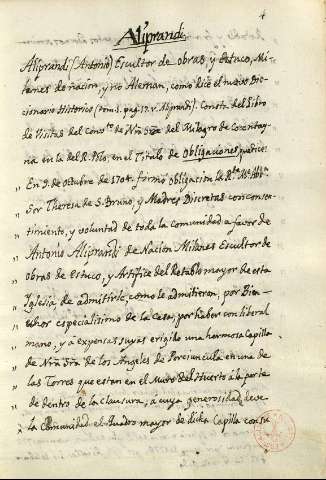 4
Aliprandi
Aliprandi (Antonio) Escultor de obras, y estuco, Mi-
lanes de nacion, y no Aleman, como dice el nuevo Dic-
cionario Historico (tom. 1. pag. 17. v. Aliprandi). Consta del Libro
de Visitas del Conv.to de Nra Sra del Milagro de Cocentay-
na en la del R. P. en el Titulo de Obligaciones que dice:
„ En 9. de Octubre de 1704. firmó Obligacion la R.da M.e Aba-
„ Sor Theresa de S. Bruno, y Madres Discretas con consen-
„ timiento, y voluntad de toda la Comunidad a favor de
„ Antonio Aliprandi de Nacion Milanes Escultor de
„ obras de Estuco, y Artifice del Retablo mayor de esta
„ Iglesia, de admitirle, como le admitieron, por Bien-
„ hechor especialisimo de la Casa, por haber con liberal
„ mano, y a expensas suyas erigido una hermosa Capilla
„ de Nra Sra de los Angeles de Porciuncula en una de
„ las Torres que estan en el Muro del Huerto á la parte
„ de dentro de la clausura, a cuya generosidad deve
„ la Comunidad el Quadro mayor de dicha Capilla con su